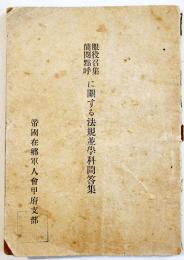 服役召集
簡閲點呼
に關する法規並學科問答集
帝國在郷軍人會甲府支部